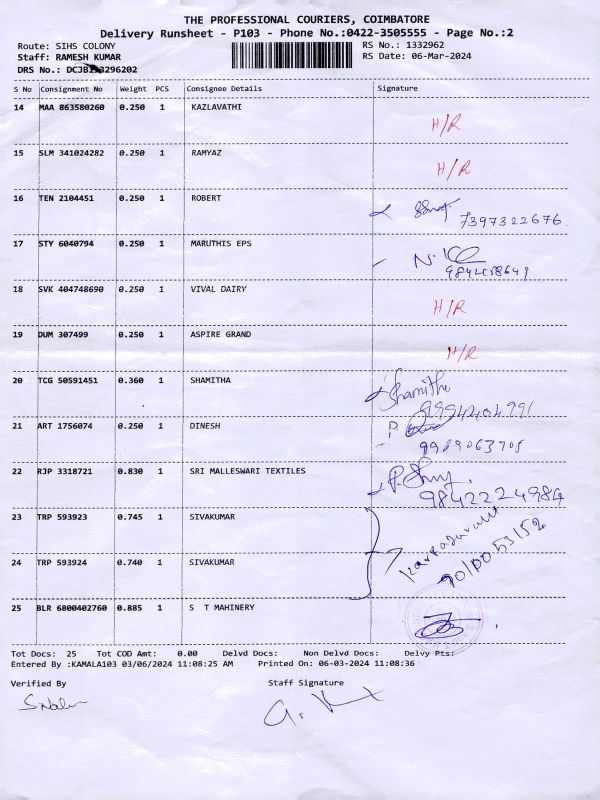 THE PROFESSIONAL COURIERS, COIMBATORE
Delivery Runsheet - P103 - Phone No.:0422-3505555 - Page No.:2
Route: SIHS COLONY RS No.: 1332962
Staff: RAMESH KUMAR RS Date: 06-Mar-2024
DRS No.: 3296202
S No Consignment No Weight PCS Consignee Details Signature
14 MAA 863580260 0.250 1 KAZLAVATHI
H/R
15 SLM 341024282 0.250 1 RAMYAZ
H/R
16 TEN 2104451 0.250 1 ROBERT
7397322676
17 STY 6040794 0.250 1 MARUTHIS EPS
18 SVK 404748690 0.250 1 VIVAL DAIRY
H/R
19 DUM 307499 0.250 1 ASPIRE GRAND
H/R
20 TCG 50591451 0.360 1 SHAMITHA
Shamitha
9994404991
21 ART 1756074 0.250 1 DINESH
22 RJP 3318721 0.830 1 SRI MALLESWARI TEXTILES
9842224984
23 TRP 593923 0.745 1 SIVAKUMAR
24 TRP 593924 0.740 1 SIVAKUMAR
25 BLR 6800402760 0.885 1 S T MAHINERY
Tot Docs: 25 Tot COD Amt: 0.00 Delvd Docs: Non Delvd Docs: Delvy Pts:
Entered By :KAMALA103 03/06/2024 11:08:25 AM Printed On: 06-03-2024 11:08:36
Verified By Staff Signature